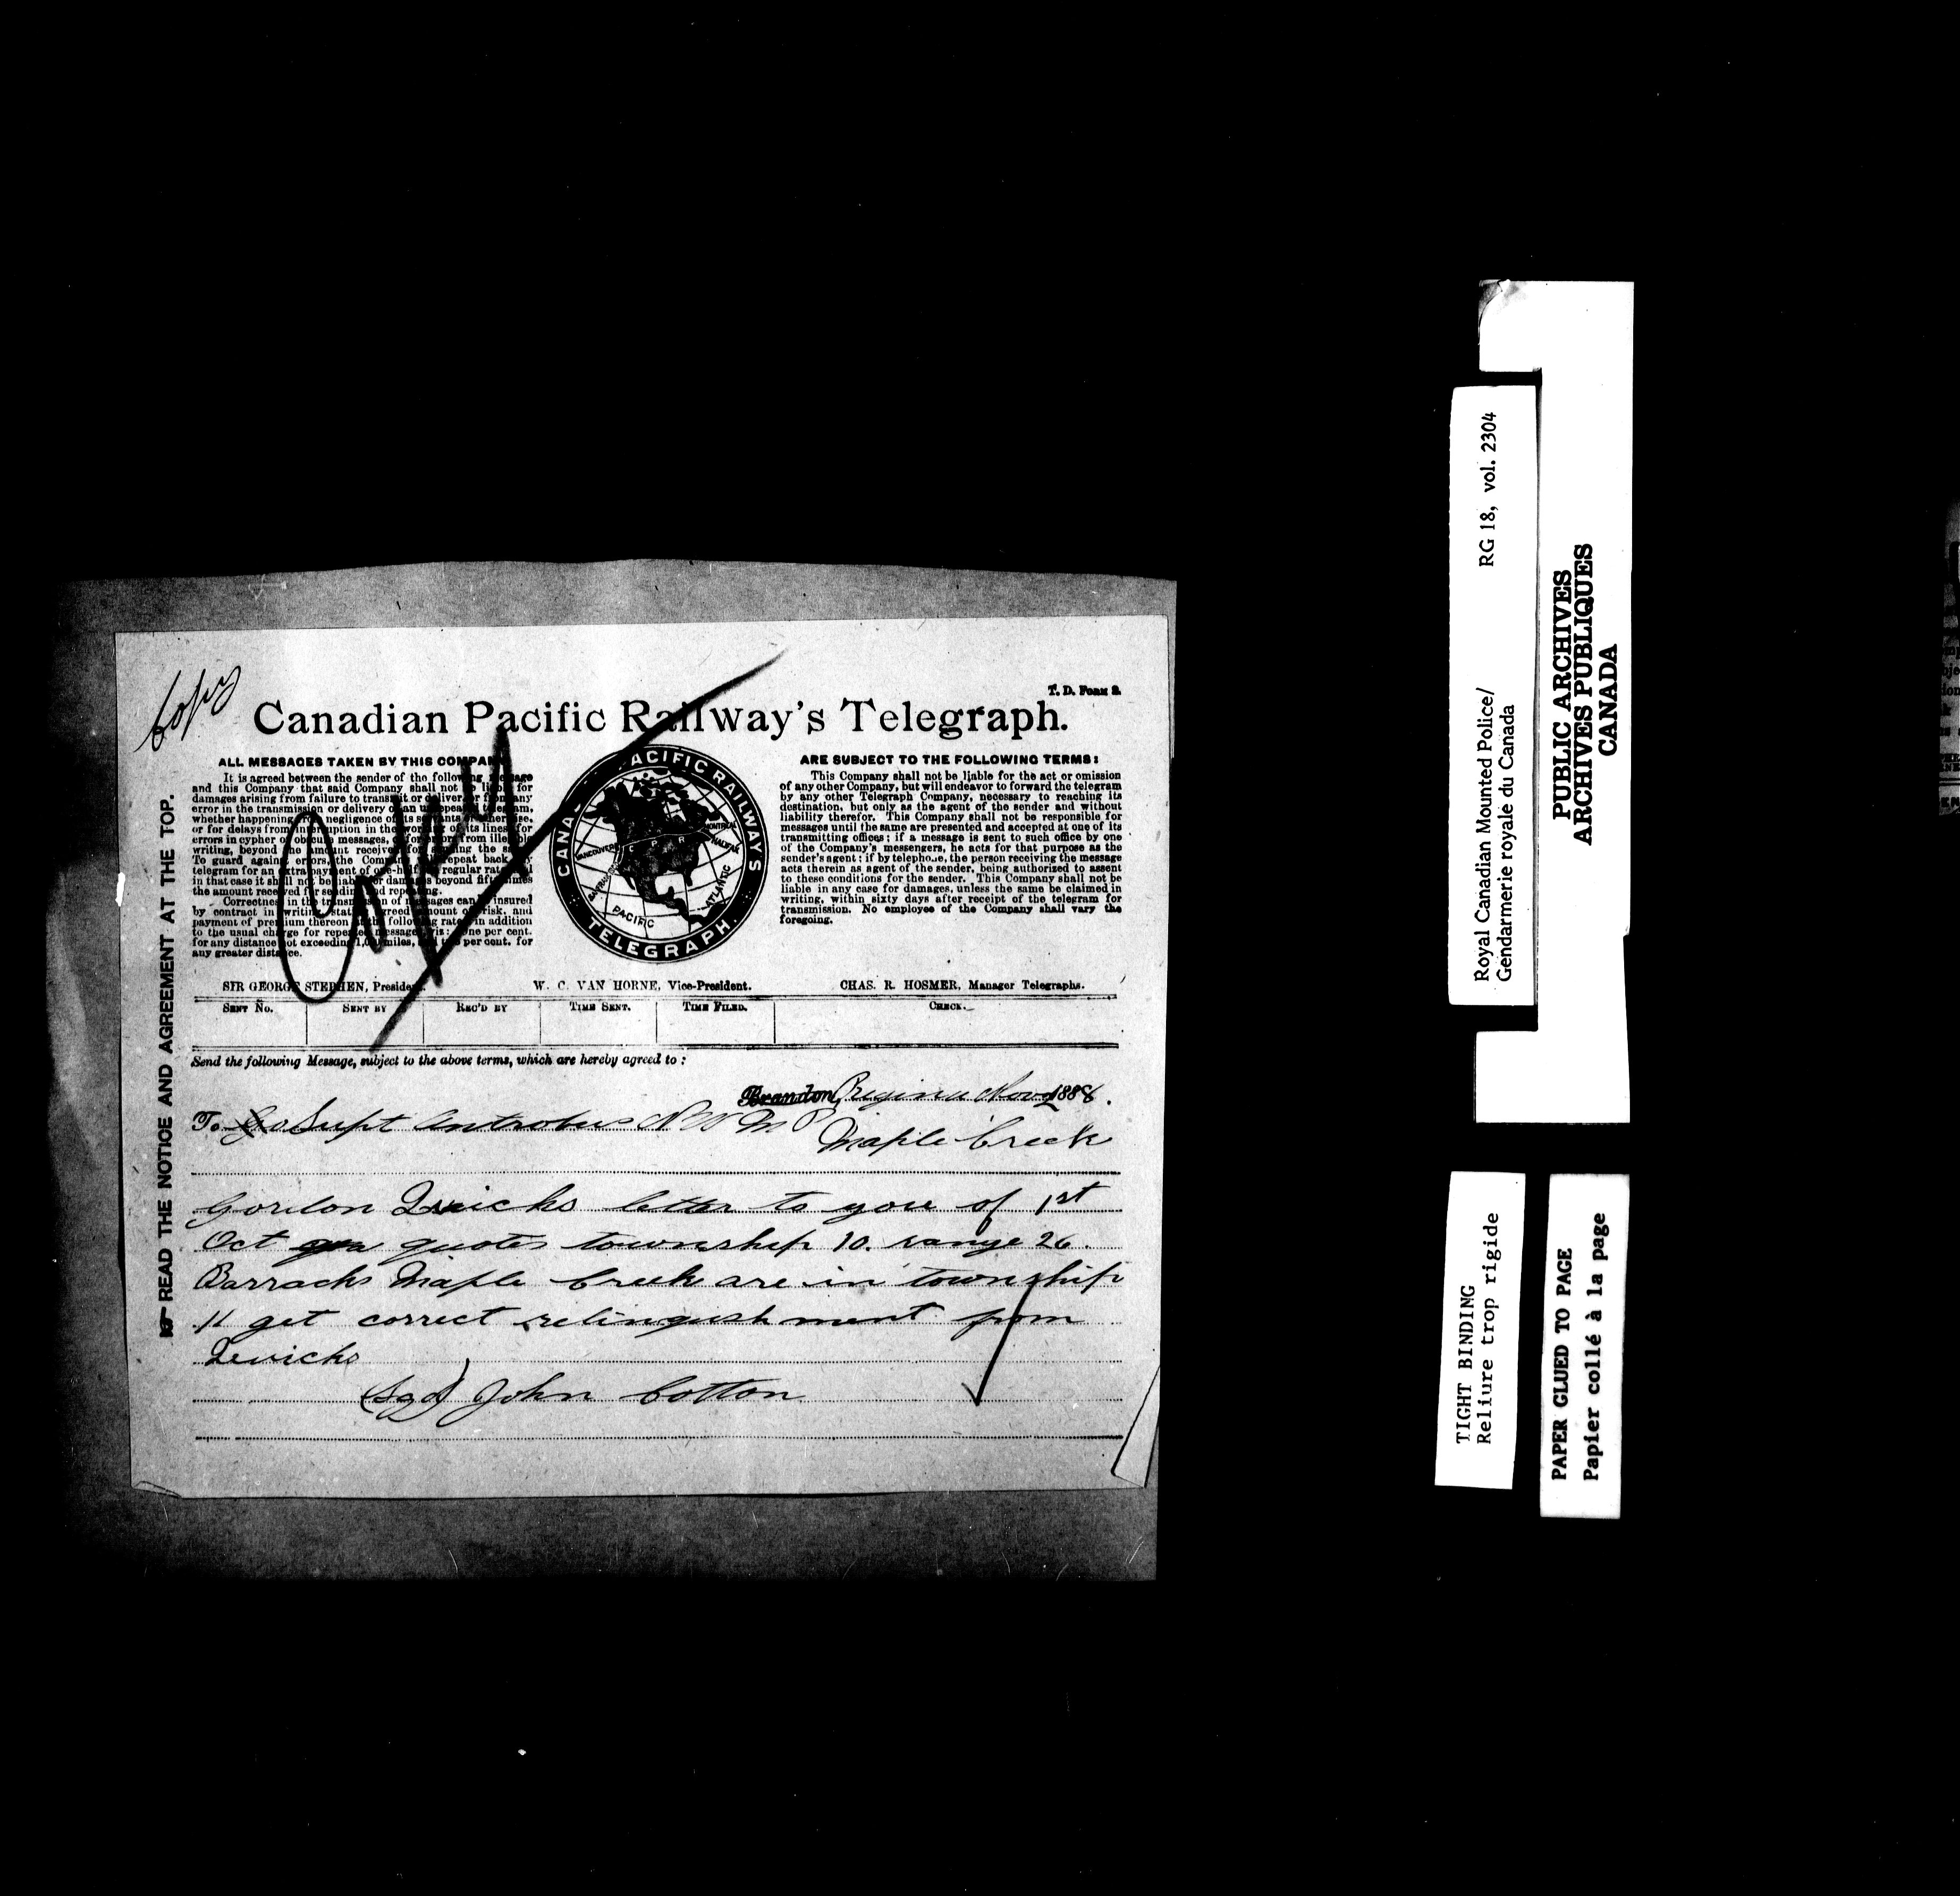 Copy
T. D. FORM 2.
Canadian Pacific Railway's Telegraph.
Copy
ALL MESSAGES TAKEN BY THIS COMPANY
It is agreed between the sender of the following message
and this Company that said Company shall not be liable for
damages arising from failure to transmit or deliver, or from any
error in the transmission or delivery of an unrepeated telegram,
whether happening from negligence of its servants or otherwise,
or for delays from interruption in the working of its lines, for
errors in cypher or obscure messages, or for errors from illegible
writing, beyond the amount received for sending the same.
To guard against errors, the Company will repeat back any
telegram for an extra payment of one-half the regular rate, and
in that case it shall not be liable for damages beyond fifty times
the amount received for sending and repeating.
Correctness in the transmission of messages can be insured
by contract in writing, stating agreed amount of risk, and
payment of premium thereon at the following rates, in addition
to the usual charge for repeated messages, viz: one per cent.
for any distance not exceeding 1,000 miles, and two per cent. for
any greater distance.
CANADIAN PACIFIC RAILWAYS TELEGRAPH.
VANCOUVER
C P R
MONTREAL
HALIFAX
SAN FRANCISCO
PACIFIC
ATLANTIC
ARE SUBJECT TO THE FOLLOWING TERMS:
This Company shall not be liable for the act or omission
of any other Company, but will endeavor to forward the telegram
by any other Telegraph Company, necessary to reaching its
destination, but only as the agent of the sender and without
liability therefor. This Company shall not be responsible for
messages until the same are presented and accepted at one of its
transmitting offices; if a message is sent to such office by one
of the Company's messengers, he acts for that purpose as the
sender's agent; if by telephone, the person receiving the message
acts therein as agent of the sender, being authorized to assent
to these conditions for the sender. This Company shall not be
liable in any case for damages, unless the same be claimed in
writing, within sixty days after receipt of the telegram for
transmission. No employee of the Company shall vary the
foregoing.
SIR GEORGE STEPHEN, President.
W. C. VAN HORNE, Vice-President.
CHAS. R. HOSMER, Manager Telegraphs.
SENT NO. SENT BY REC'D BY TIME SENT. TIME FILED. CHECK.
Send the following Message, subject to the above terms, which are hereby agreed to:
Brandon, Regina Nov 2 1888.
To Supt Antrobus N W M P
Maple Creek
Gordon Quicks letter to you of 1st
Oct quotes township 10. range 26.
Barracks Maple Creek are in township
11 get correct relinquishment from
Quicks
(Sgd) John Cotton
READ THE NOTICE AND AGREEMENT AT THE TOP.
Royal Canadian Mounted Police/ RG 18, vol. 2304
Gendarmerie royale du Canada
PUBLIC ARCHIVES
ARCHIVES PUBLIQUES
CANADA
TIGHT BINDING
Reliure trop rigide
PAPER GLUED TO PAGE
Papier collé à la page